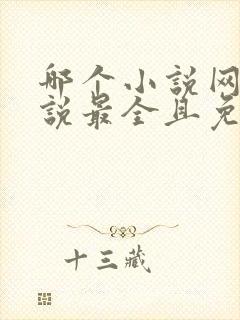 哪个小说网
说最全且免
十三藏